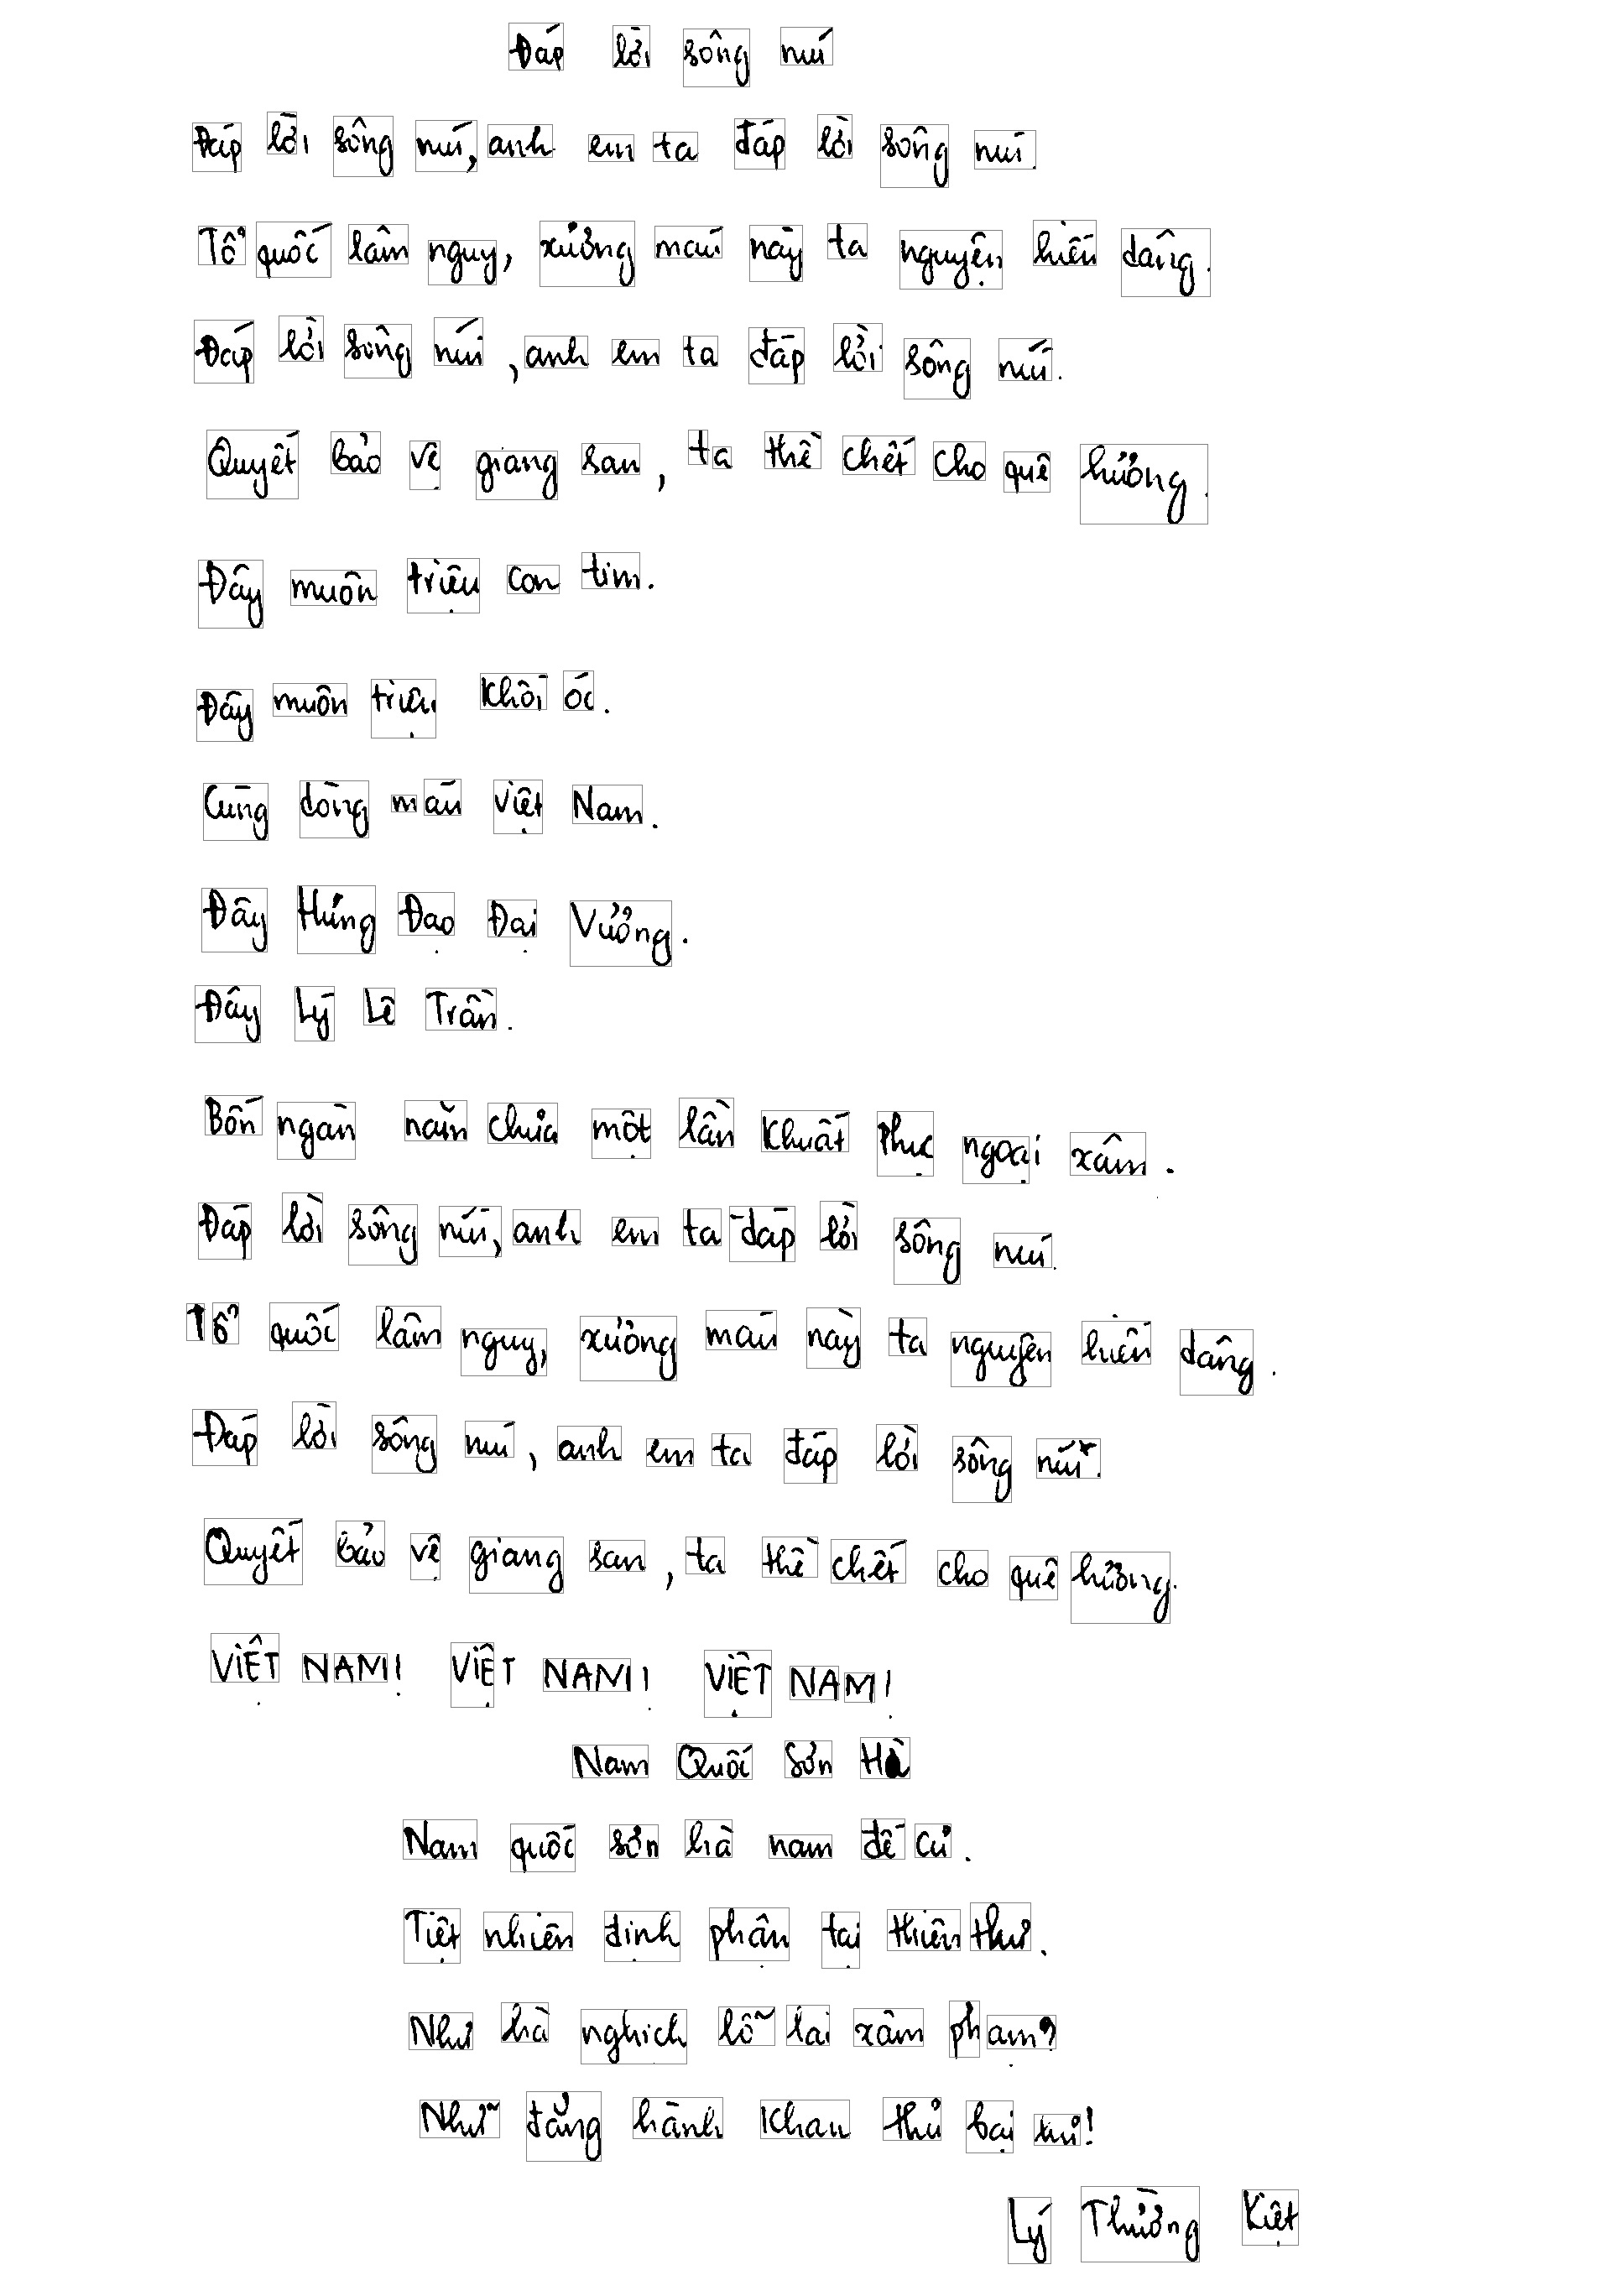 Đáp lời sông núi
Đáp lời sông núi, anh em ta đáp lời sông núi.
Tổ quốc lâm nguy, xương máu này ta nguyện hiến dâng.
Đáp lời sông núi, anh em ta đáp lời sông núi.
Quyết bảo vệ giang san, ta thề chết cho quê hương.
Đây muôn triệu con tim.
Đây muôn triệu khối óc.
Cùng dòng máu Việt Nam.
Đây Hưng Đạo Đại Vương.
Đây Lý Lê Trần.
Bốn ngàn năm chưa một lần khuất phục ngoại xâm.
Đáp lời sông núi, anh em ta đáp lời sông núi.
Tổ quốc lâm nguy, xương máu này ta nguyện hiến dâng.
Đáp lời sông núi, anh em ta đáp lời sông núi.
Quyết bảo vệ giang san, ta thề chết cho quê hương.
VIỆT NAM! VIỆT NAM! VIỆT NAM!
Nam Quốc Sơn Hà
Nam quốc sơn hà nam đế cư.
Tiệt nhiên định phận tại thiên thư.
Như hà nghịch lỗ lai xâm phạm?
Nhữ đẳng hành khan thủ bại hư!
Lý Thường Kiệt